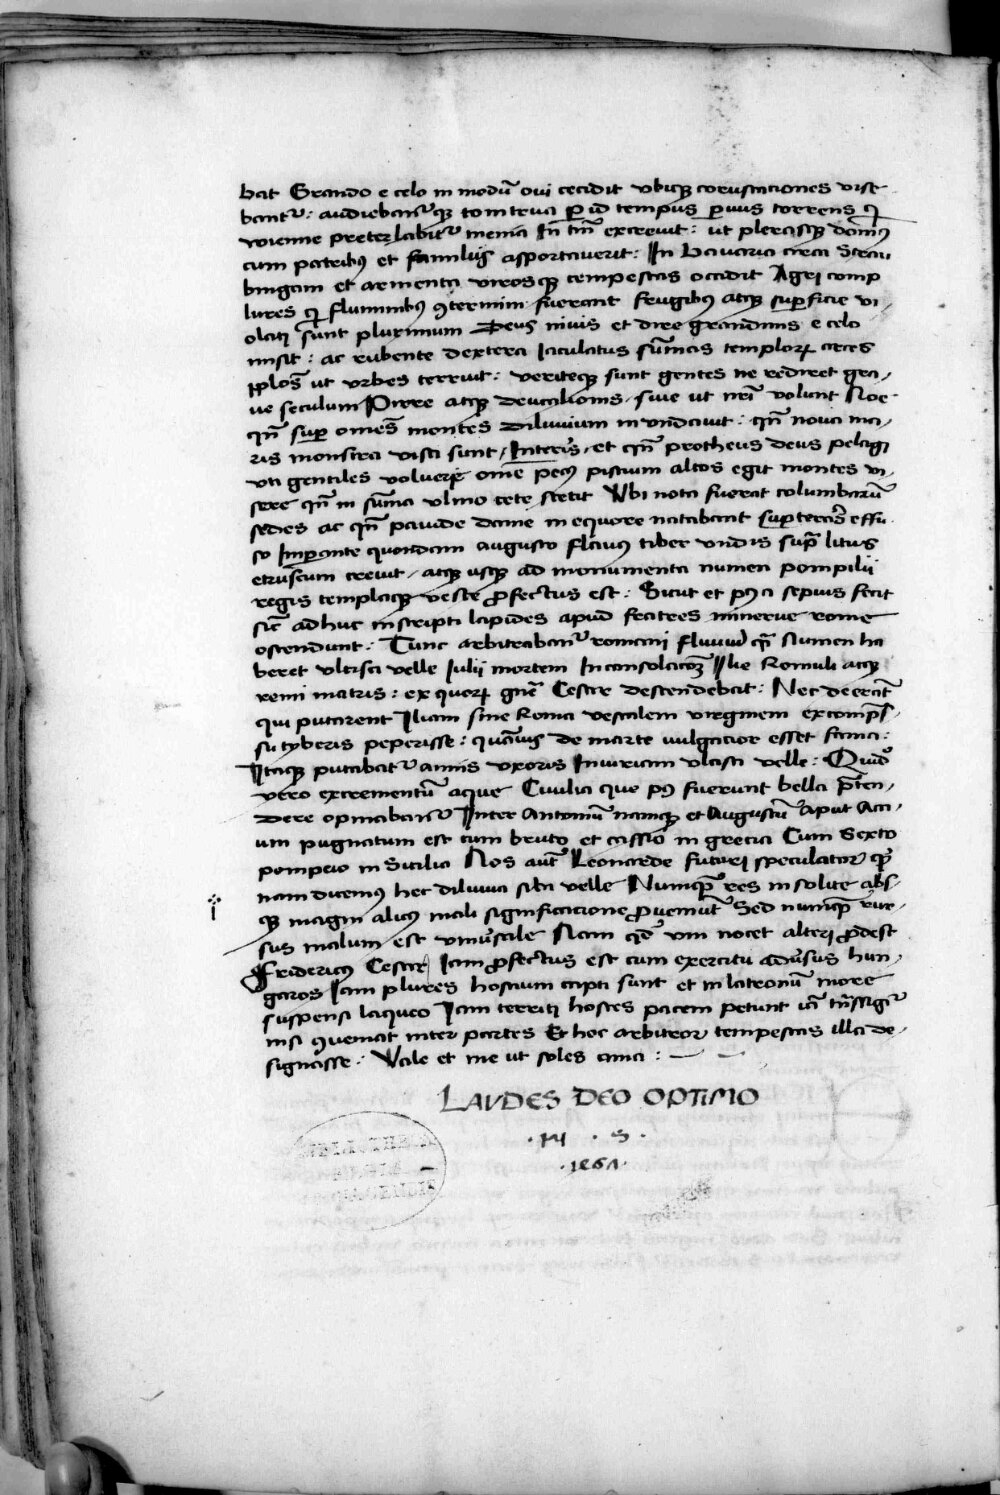 bat Grando e celo in modū oui cecidit vbiqȝ coruscationes vise
bantr̄ : audiebant̄qȝ tonitrua ꝑ id tempus paruus torrens qͥ
voienne preterlabit̄ menia In tm̄ excreuit : ut plerasqȝ domꝰ
cum patribꝰ et familiis asportauerit : In bauaria circa Strau
bingam et armenta virosqȝ tempestas occidit Agri comp
lures qͥ fluminibꝰ ꝯtermini fuerant frugibus atqȝ suꝑficie vi-
olati sunt plurimum Deus niuis et dire grandinis e celo
misit : ac rubente dextera iaculatus sūmas templorꝝ arces
pplos̄ ut vrbes terruit : veriteqȝ sunt gentes ne rediret gra-
ue seculum Pirre atqȝ deucalionis siue ut nr̄i volunt Noe
qn̄ suꝑ omēs montes diluuium inundauit : qn̄ noua ma-
ris monstra visa sunt Interis et qn̄ protheus deus pelagi
vti gentiles voluere omē pecꝰ piscium altos egit montes vi-
sere qn̄ in sūma vlmo cete stetit Vbi nota fuerat columbarū
sedes ac qn̄ pauide dame in equore natabant suꝑ terras effu-
so Imꝑante quondam augusto fluuiꝰ tiber vndis supra litus
etruscum creuit atqȝ usqȝ ad monumenta numen pompilii
regis templaqȝ veste ꝓfectus est : Sicut et pꝰea sepius fecit
sic adhuc inscripti lapides apud fratres minerue rome
ostendunt : Tunc arbitrabant̄ romani fluuiū qͣ Numen ha
beret vlcisci velle Iulii mortem In consolatōȝ Ilie Romuli atqȝ
remi matris : ex quorꝝ gn̄e Cesar descendebat : Nec deerāt
qui putarent Iliam siue Romā vestalem virginem ex comp̄s-
su tyberis peperisse : quāuis de marte uulgatior esset fama :
Itaqȝ putabat̄ amnis vxoris Iniuriam vlcisci velle : Quidā
vero excrementū aque Ciuilia que pꝰ fuerunt bella p̄ten-
dere opinabant̄ Inter Antoniū namqȝ et Augustū aput Acci-
um pugnatum est cum bruto et cassio in grecia Cum Sexto
pompeio in Sicilia Nos aūt Leonarde futuri speculatorꝭ
nam dicemꝰ hec diluuia sibi velle Numqͣ res insolite abs-
qȝ magni alicꝰ mali significatione ꝓueniūt Sed numqͣ rur-
sus malum est vniūsale Nam qd̄ vni nocet alteri ꝓdest
Fridericꝰ Cesar Iam ꝓfectus est cum exercitu aduersus hun-
garos Iam plures hostium capti sunt et in latronū more
suspensi laqueo Iam territi hostes pacem petunt
nisi ꝯueniat inter partes Et hoc arbitror tempestas illa de-
signasse : Vale et me ut soles ama :
LAVDES DEO OPTIMO
· M · S ·
· 1461 ·